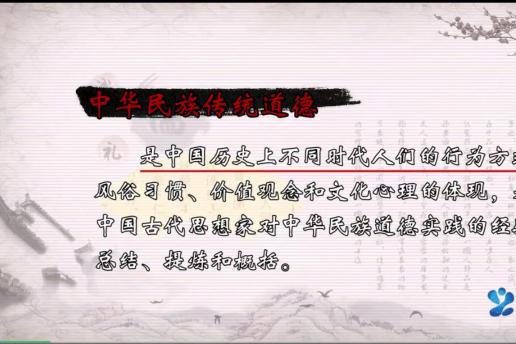 中华民族传统道德
是中国历史上不同时代人们的行为方
风俗习惯、价值观念和文化心理的体现，
中国古代思想家对中华民族道德实践的经
总结、提炼和概括。
礼